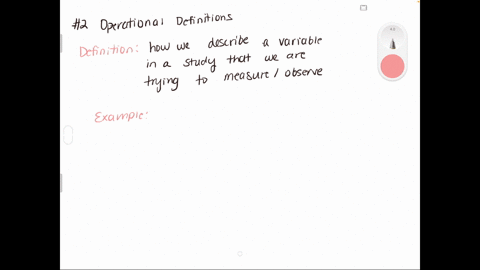 #2 Operational Definitions
Definition: how we describe a variable
in a study that we are
trying to measure / observe
Example: